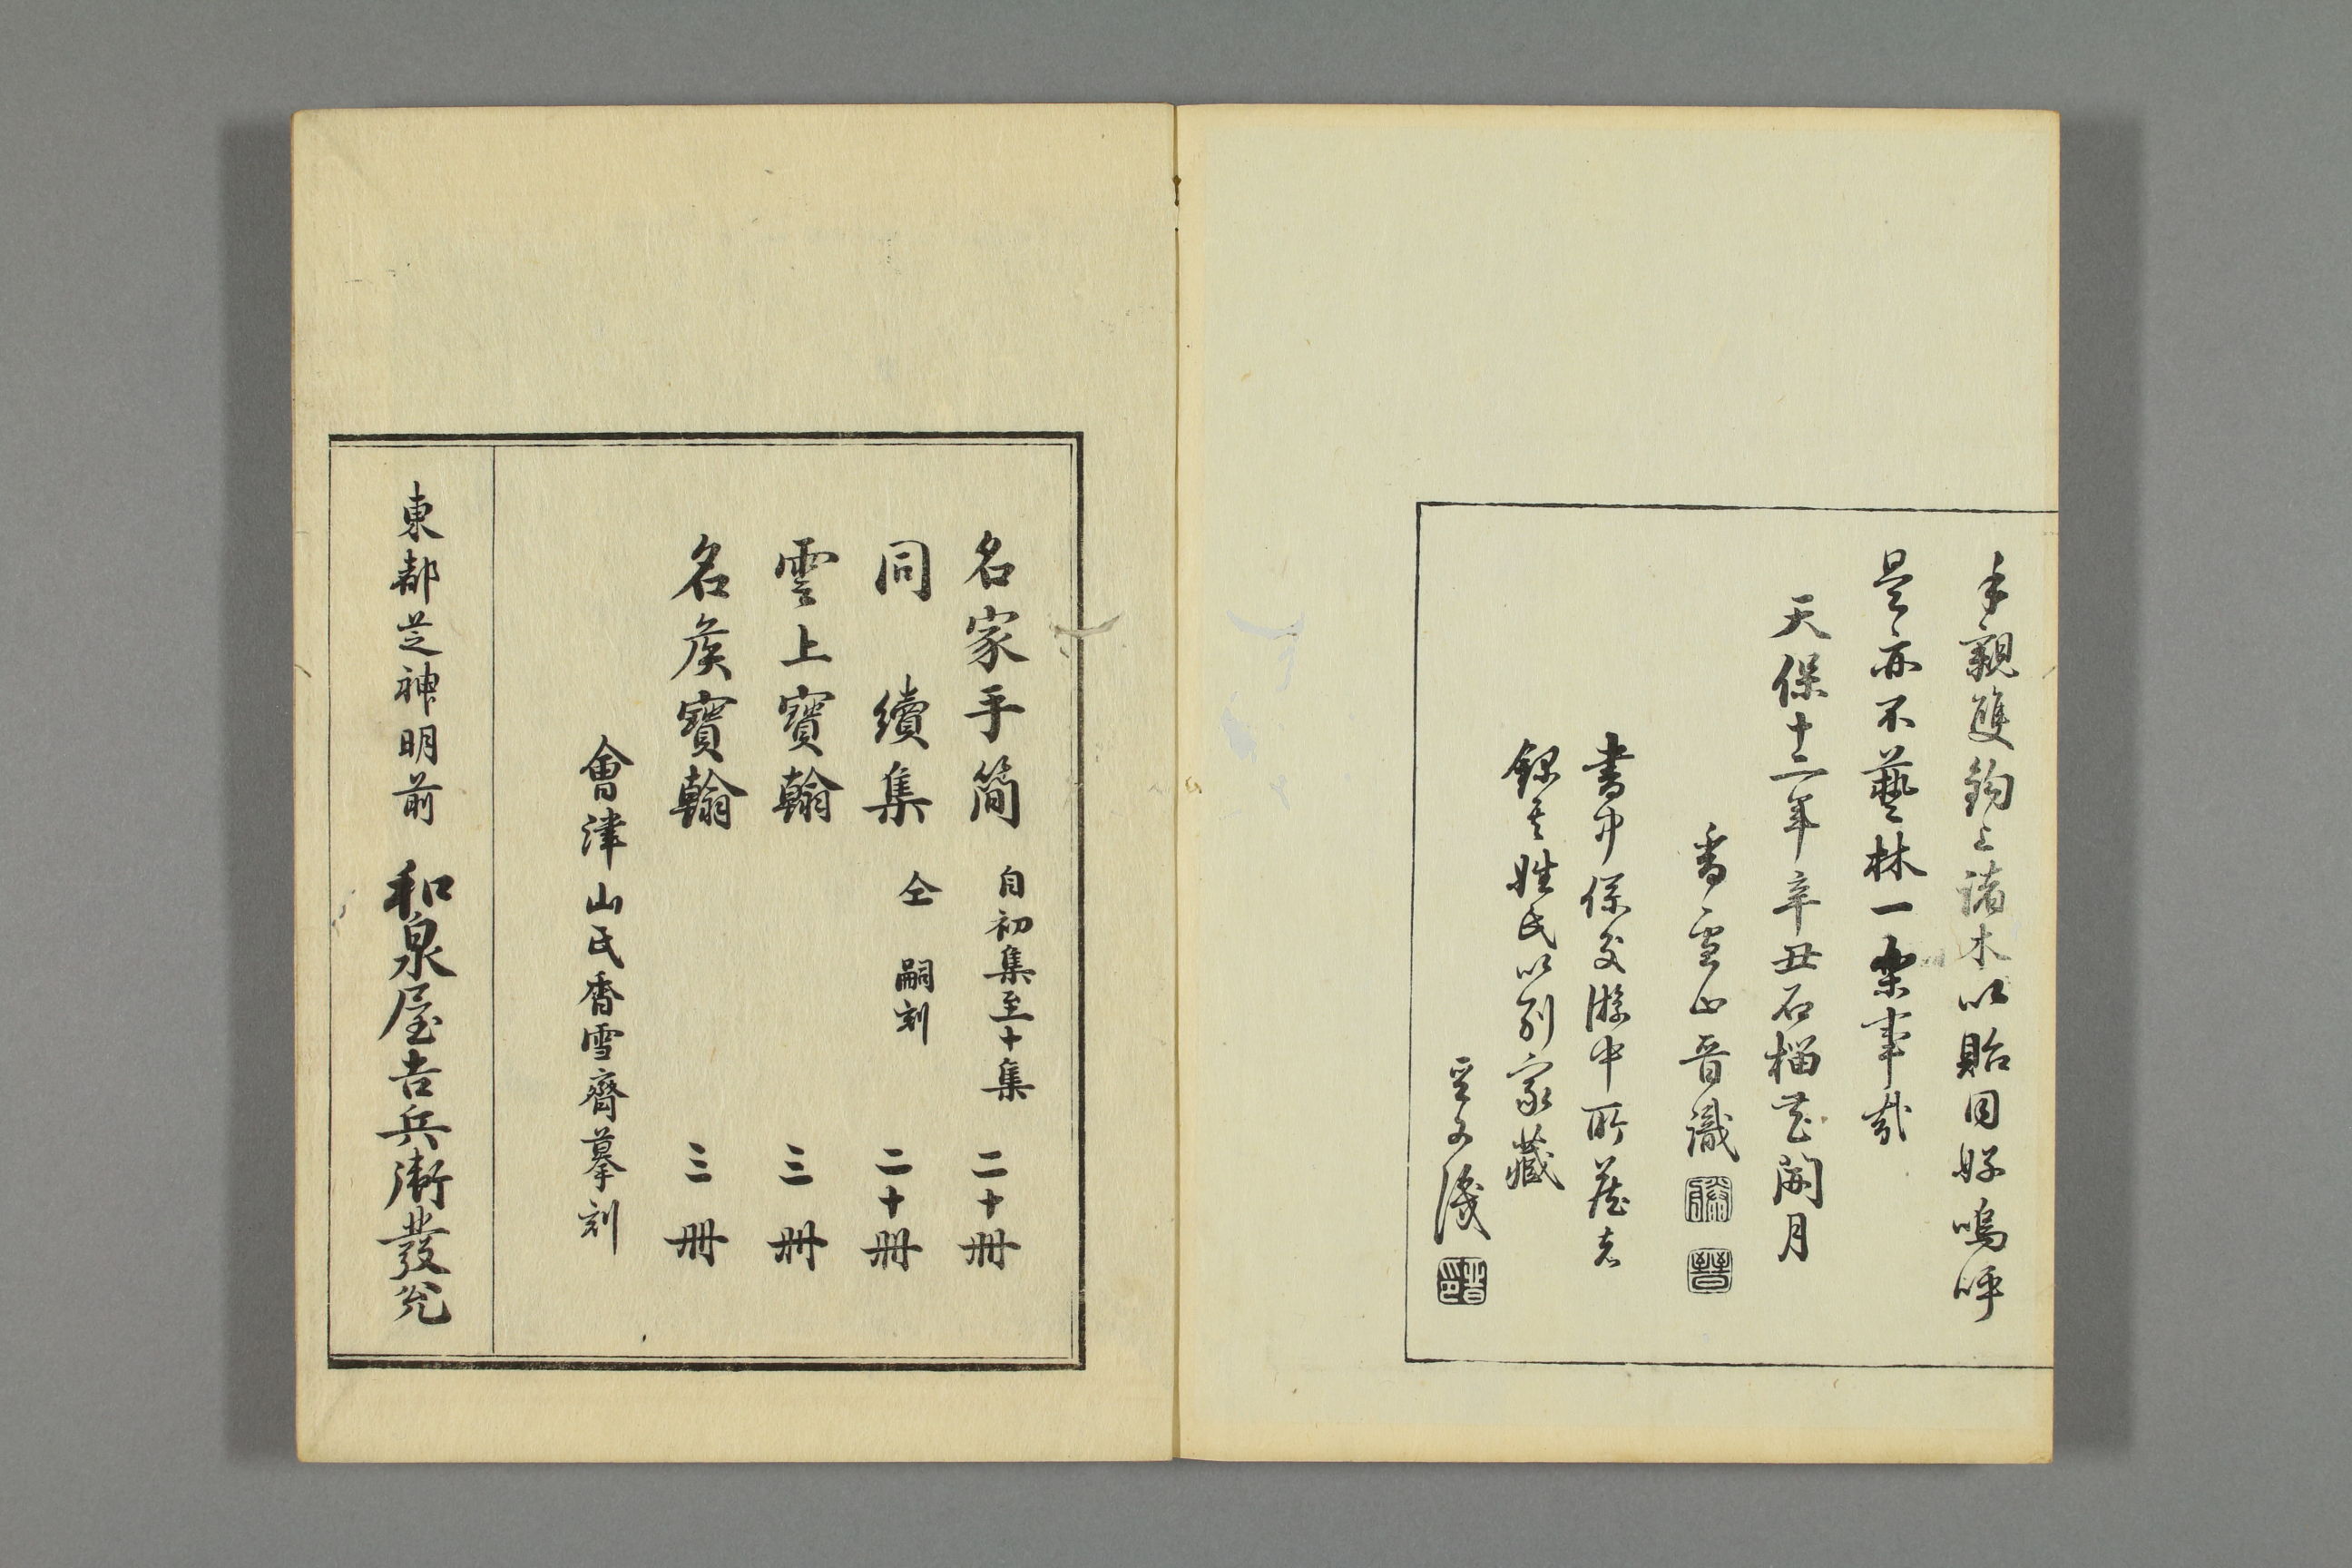 手親雙鉤上諸木以貽同好嗚呼
是亦不藝林一樂事哉
天保十二年辛丑石榴花開月
香雪山晋識
書中係交游中所藏者
録其姓氏以別家藏
晋又識
名家手簡 自初集至十集 二十冊
同 續集 仝 嗣刻 二十冊
雲上寶翰 三冊
名矦寶翰 三冊
會津山氏香雪齋摹刻
東都芝神明前 和泉屋吉兵衛發兌